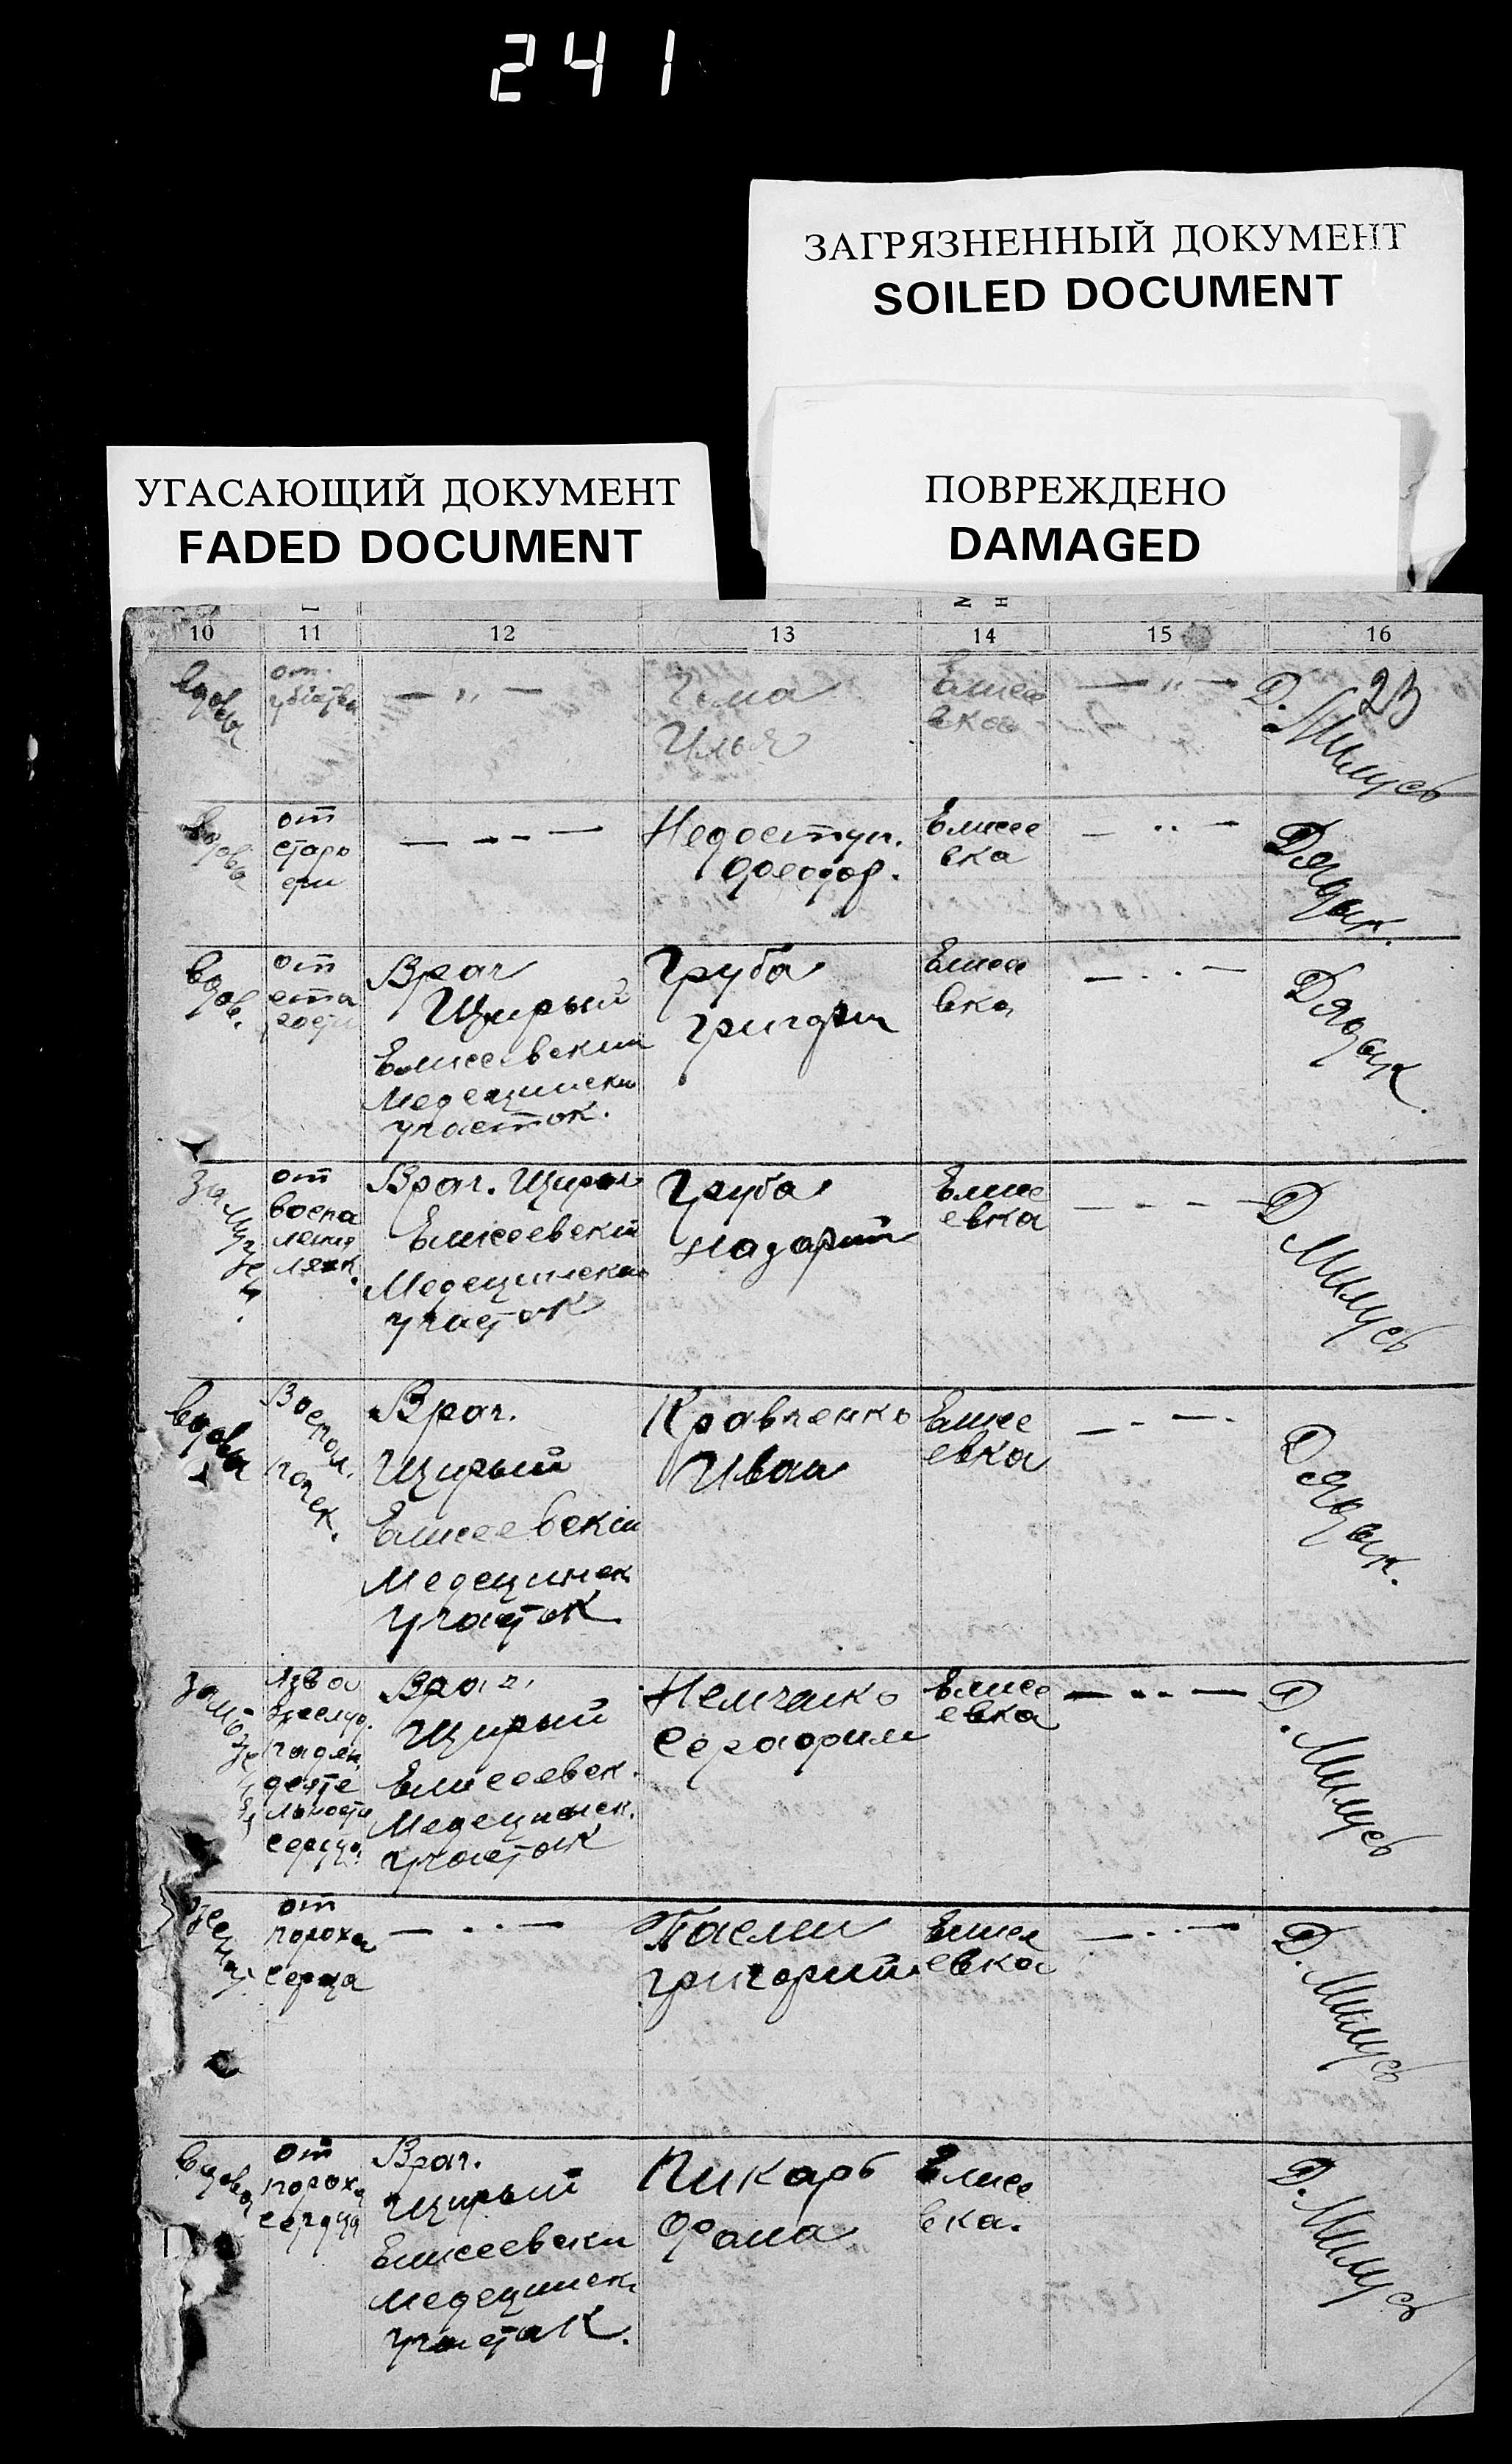 241
ЗАГРЯЗНЕННЫЙ ДОКУМЕНТ
SOILED DOCUMENT
ПОВРЕЖДЕНО
DAMAGED
УГАСАЮЩИЙ ДОКУМЕНТ
FADED DOCUMENT
10 11 12 13 14 15 16
23
вдова
от
убіства
— " —
Илья
Елисе
вка
— " —
Д. Милусь
вдова
от
старо
сти
— - - —
Недоступ.
Феодор.
Елисе
вка
— .. —
Дядык.
вдов.
от
ста
рости
Врач
Щирый
Елисеевский
Медецински
участок.
Груба
Григорий
Елисе
вка
— .. —
Дядык.
замужем.
от
воспа
ления
легк.
Врач. Щирый
Елисеевский
Медецинский
участок
Груба
Назарий
Елисе
евка
— - - —
Д Милусь
вдова
Воспал.
почек.
Врач.
Щирый
Елисеевскій
Медецинск.
Участок.
Кравченко
Иван
Елисе
евка
— - — .
Дядык.
замужем
язва
деяте
льности
сердца.
Врач.
Щирый
Елисеевск.
Медецинск.
участок
Немченко
Серафим
Елисе
евка
— .. —
Д. Милусь
от
пороха
серца
— .. —
Григорий
Елисе
евка
— .. —
Д. Милусь
вдова
от
пороха
сердца
Врач.
Щирый
Елисеевски
медецинск.
участок.
Пикарь
Фома
Елисе
вка.
Д. Милусь